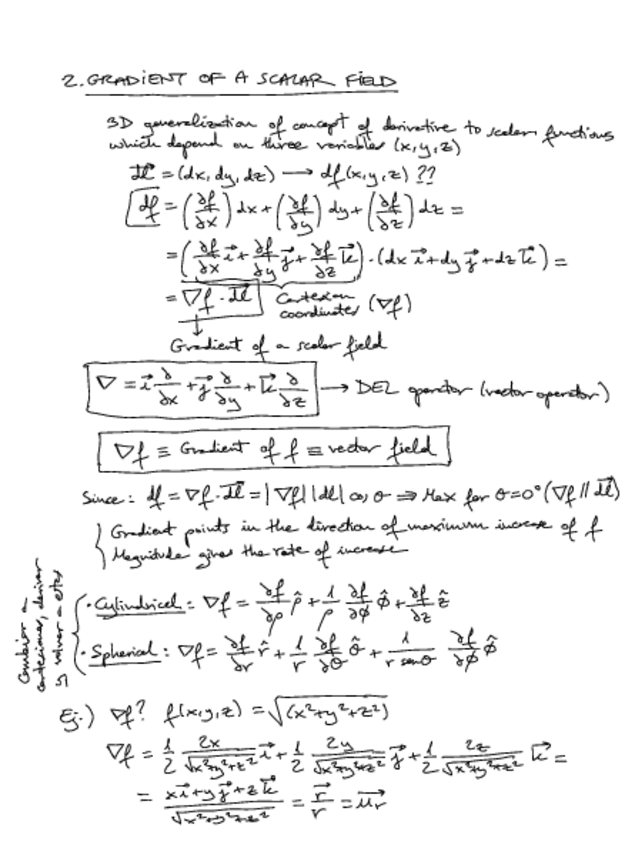 2. GRADIENT OF A SCALAR FIELD
3D generalization of concept of derivative to scalar functions
which depend on three variables (x,y,z)
d⃗l = (dx, dy, dz) → df(x,y,z) ??
df = (∂f/∂x) dx + (∂f/∂y) dy + (∂f/∂z) dz =
= (∂f/∂x i⃗ + ∂f/∂y j⃗ + ∂f/∂z k⃗) · (dx i⃗ + dy j⃗ + dz k⃗) =
= ∇f · d⃗l Cartesian coordinates (∇f)
↓
Gradient of a scalar field
∇ = i⃗ ∂/∂x + j⃗ ∂/∂y + k⃗ ∂/∂z → DEL operator (vector operator)
∇f ≡ Gradient of f ≡ vector field
Since: df = ∇f · d⃗l = |∇f| |dl| cos θ ⇒ Max for θ=0° (∇f // d⃗l)
Gradient points in the direction of maximum increase of f
Magnitude gives the rate of increase
Cambiar a
cartesianas, derivar
y volver a estas
· Cylindrical: ∇f = ∂f/∂ρ ρ̂ + 1/ρ ∂f/∂ϕ ϕ̂ + ∂f/∂z ẑ
· Spherical: ∇f = ∂f/∂r r̂ + 1/r ∂f/∂θ θ̂ + 1/(r senθ) ∂f/∂ϕ ϕ̂
Ej.) ∇f? f(x,y,z) = √(x²+y²+z²)
∇f = 1/2 2x/√(x²+y²+z²) i⃗ + 1/2 2y/√(x²+y²+z²) j⃗ + 1/2 2z/√(x²+y²+z²) k⃗ =
= (x i⃗ + y j⃗ + z k⃗)/√(x²+y²+z²) = r⃗/r = u⃗r